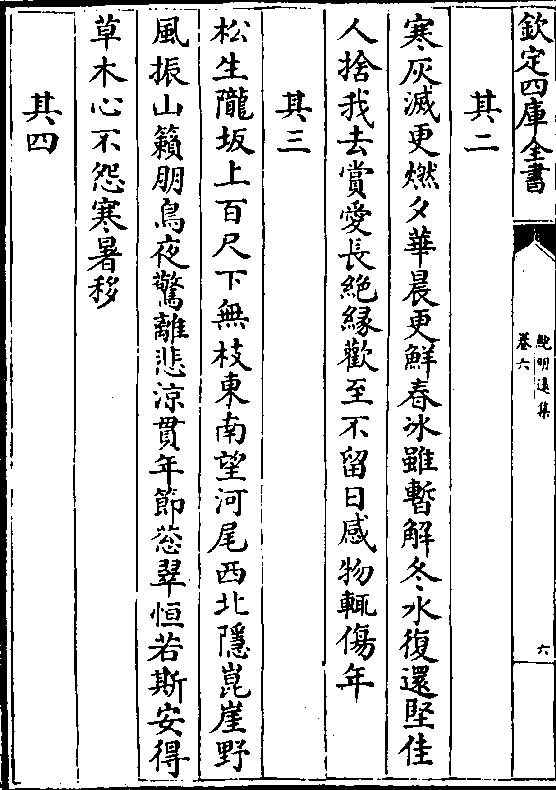 欽定四庫全書
鮑明遠集
卷六
六
其二
寒灰滅更燃夕華晨更鮮春冰雖暫解冬水復還堅佳
人捨我去賞愛長絶縁歡至不留日感物輒傷年
其三
松生隴坂上百尺下無枝東南望河尾西北隱崑崖野
風振山籟朋鳥夜驚離悲涼貫年節葱翠恒若斯安得
草木心不怨寒暑移
其四